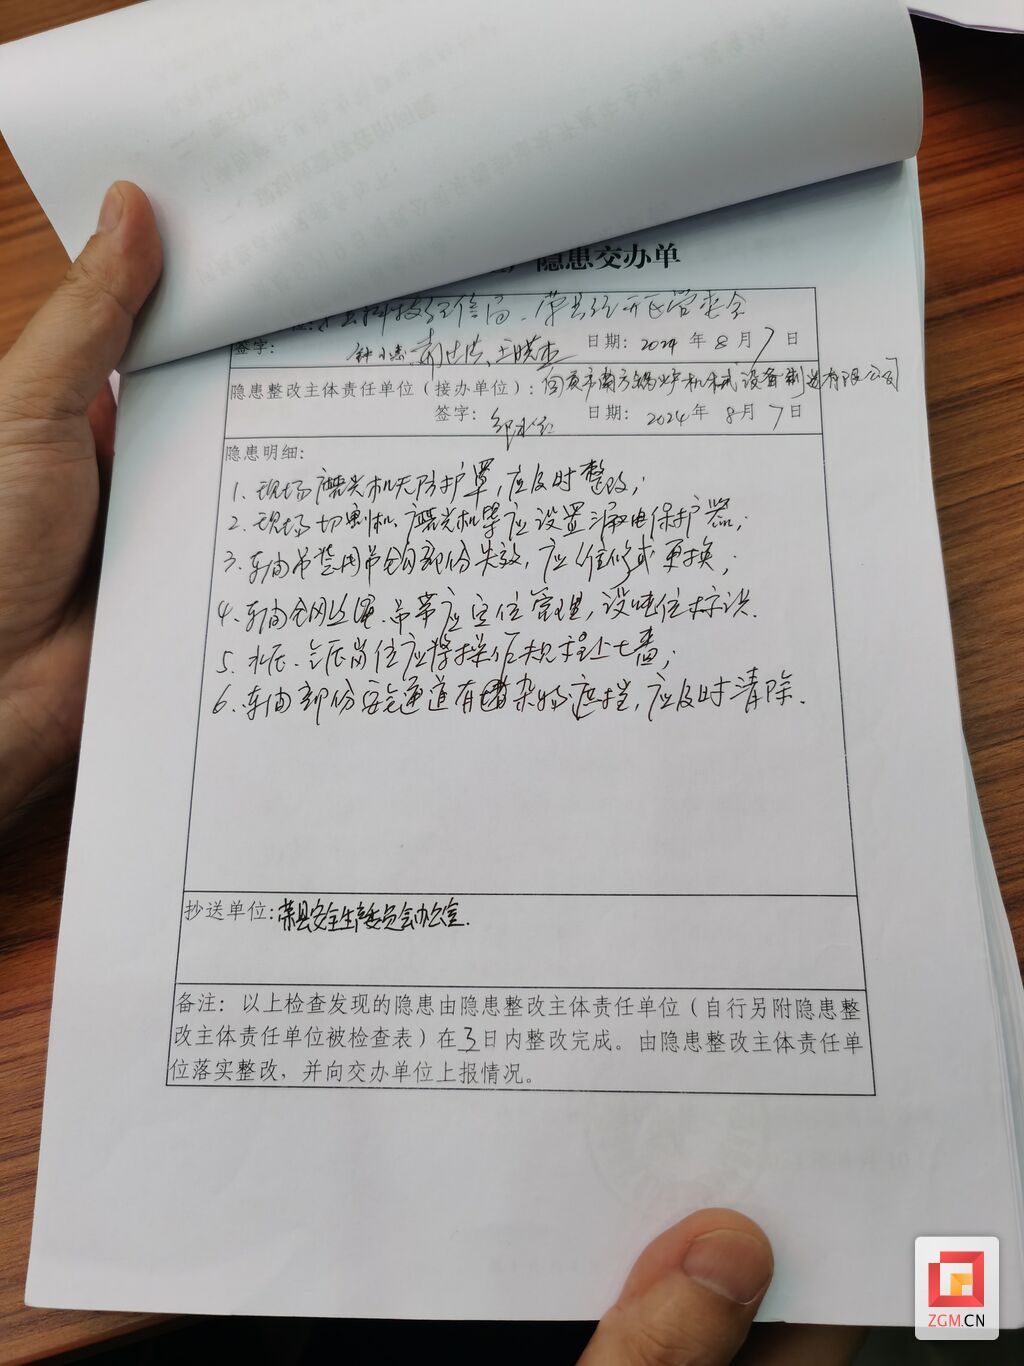 隐患交办单
科技经信局、荣县经开区管委会
签字: 日期: 2024 年 8 月 7 日
隐患整改主体责任单位（接办单位）: 自贡市南方锅炉机械设备制造有限公司
签字: 日期: 2024年 8月 7日
隐患明细:
1. 现场磨光机无防护罩, 应及时整改;
2. 现场切割机、磨光机等应设置漏电保护器;
3. 车间吊装用吊钩部份失效, 应维修或更换;
4. 车间钢丝绳、吊带应定位管理, 设定位标识.
5. 岗位应将操作规程上墙;
6. 车间部份安全通道有杂物遮挡, 应及时清除.
抄送单位: 荣县安全生产委员会办公室.
备注: 以上检查发现的隐患由隐患整改主体责任单位（自行另附隐患整
改主体责任单位被检查表）在3日内整改完成。由隐患整改主体责任单
位落实整改，并向交办单位上报情况。
ZGM.CN